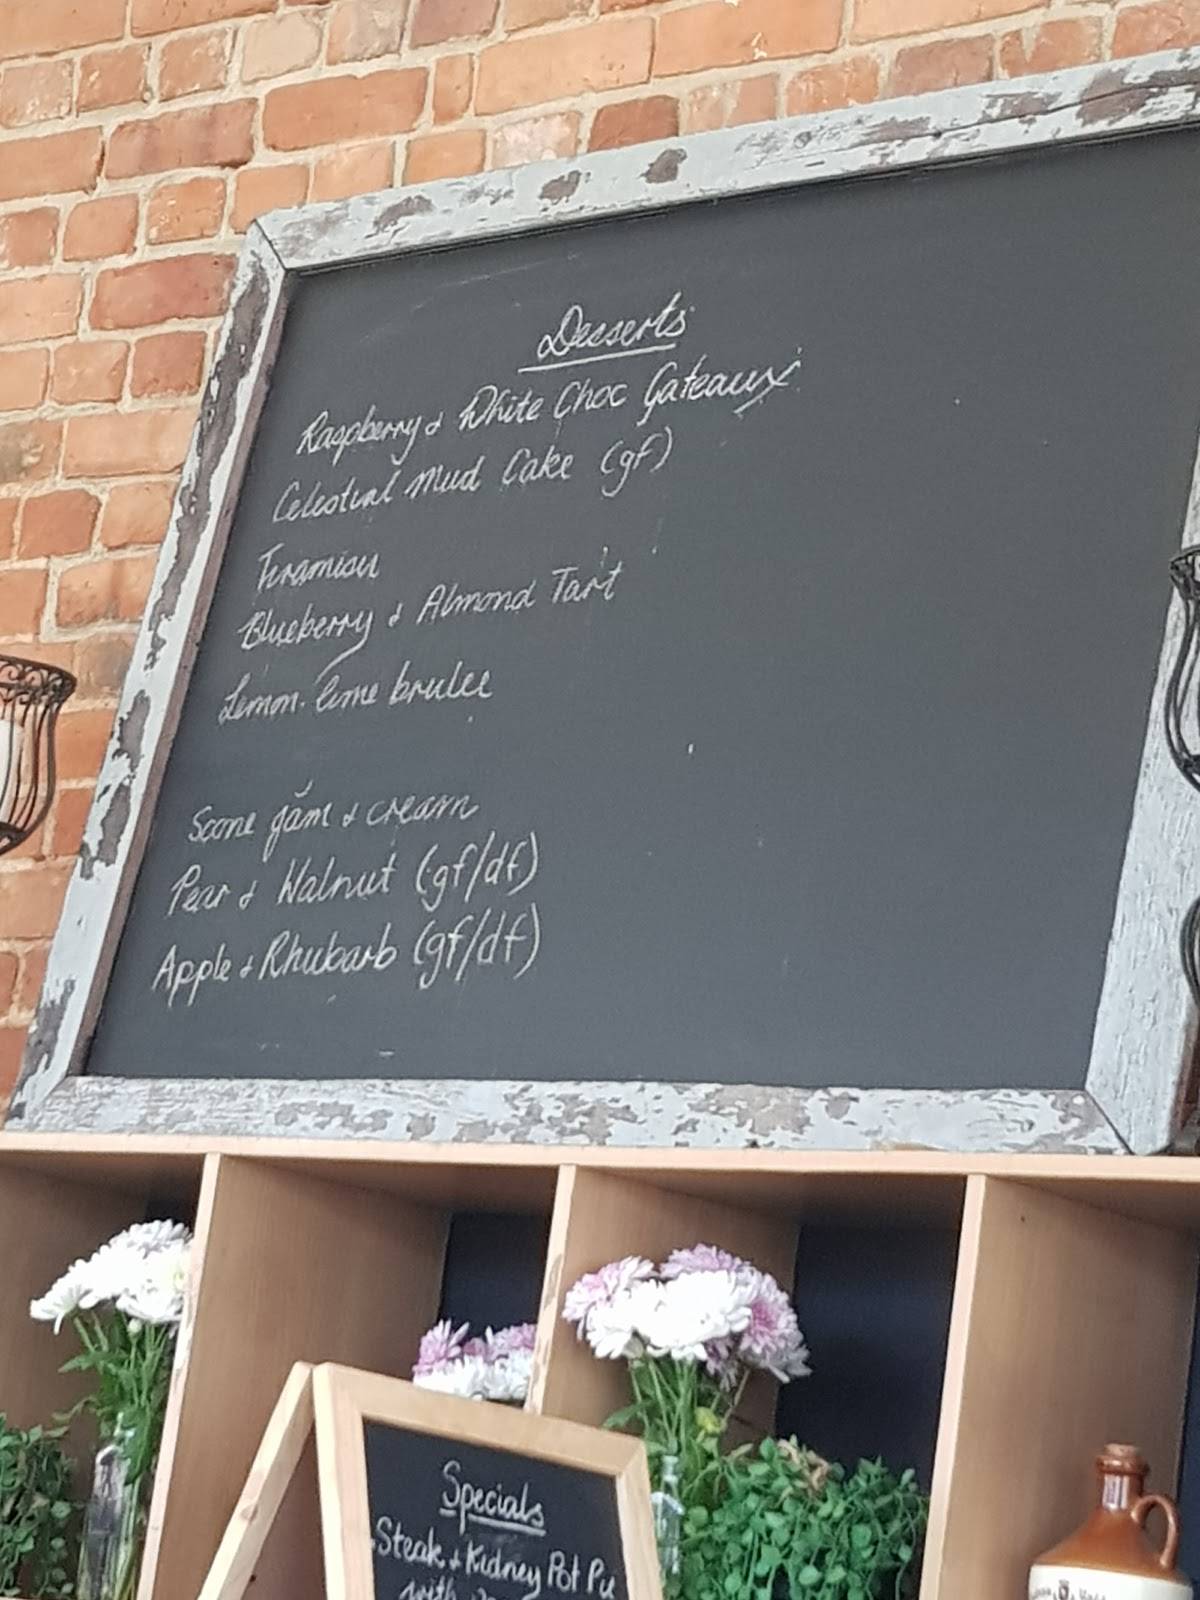 Desserts
Raspberry & White Choc Gateaux
Celestial Mud Cake (gf)
Tiramisu
Blueberry & Almond Tart
Lemon-lime brulee
Scone jam & cream
Pear & Walnut (gf/df)
Apple & Rhubarb (gf/df)
Specials
Steak & Kidney Pot Pie
with